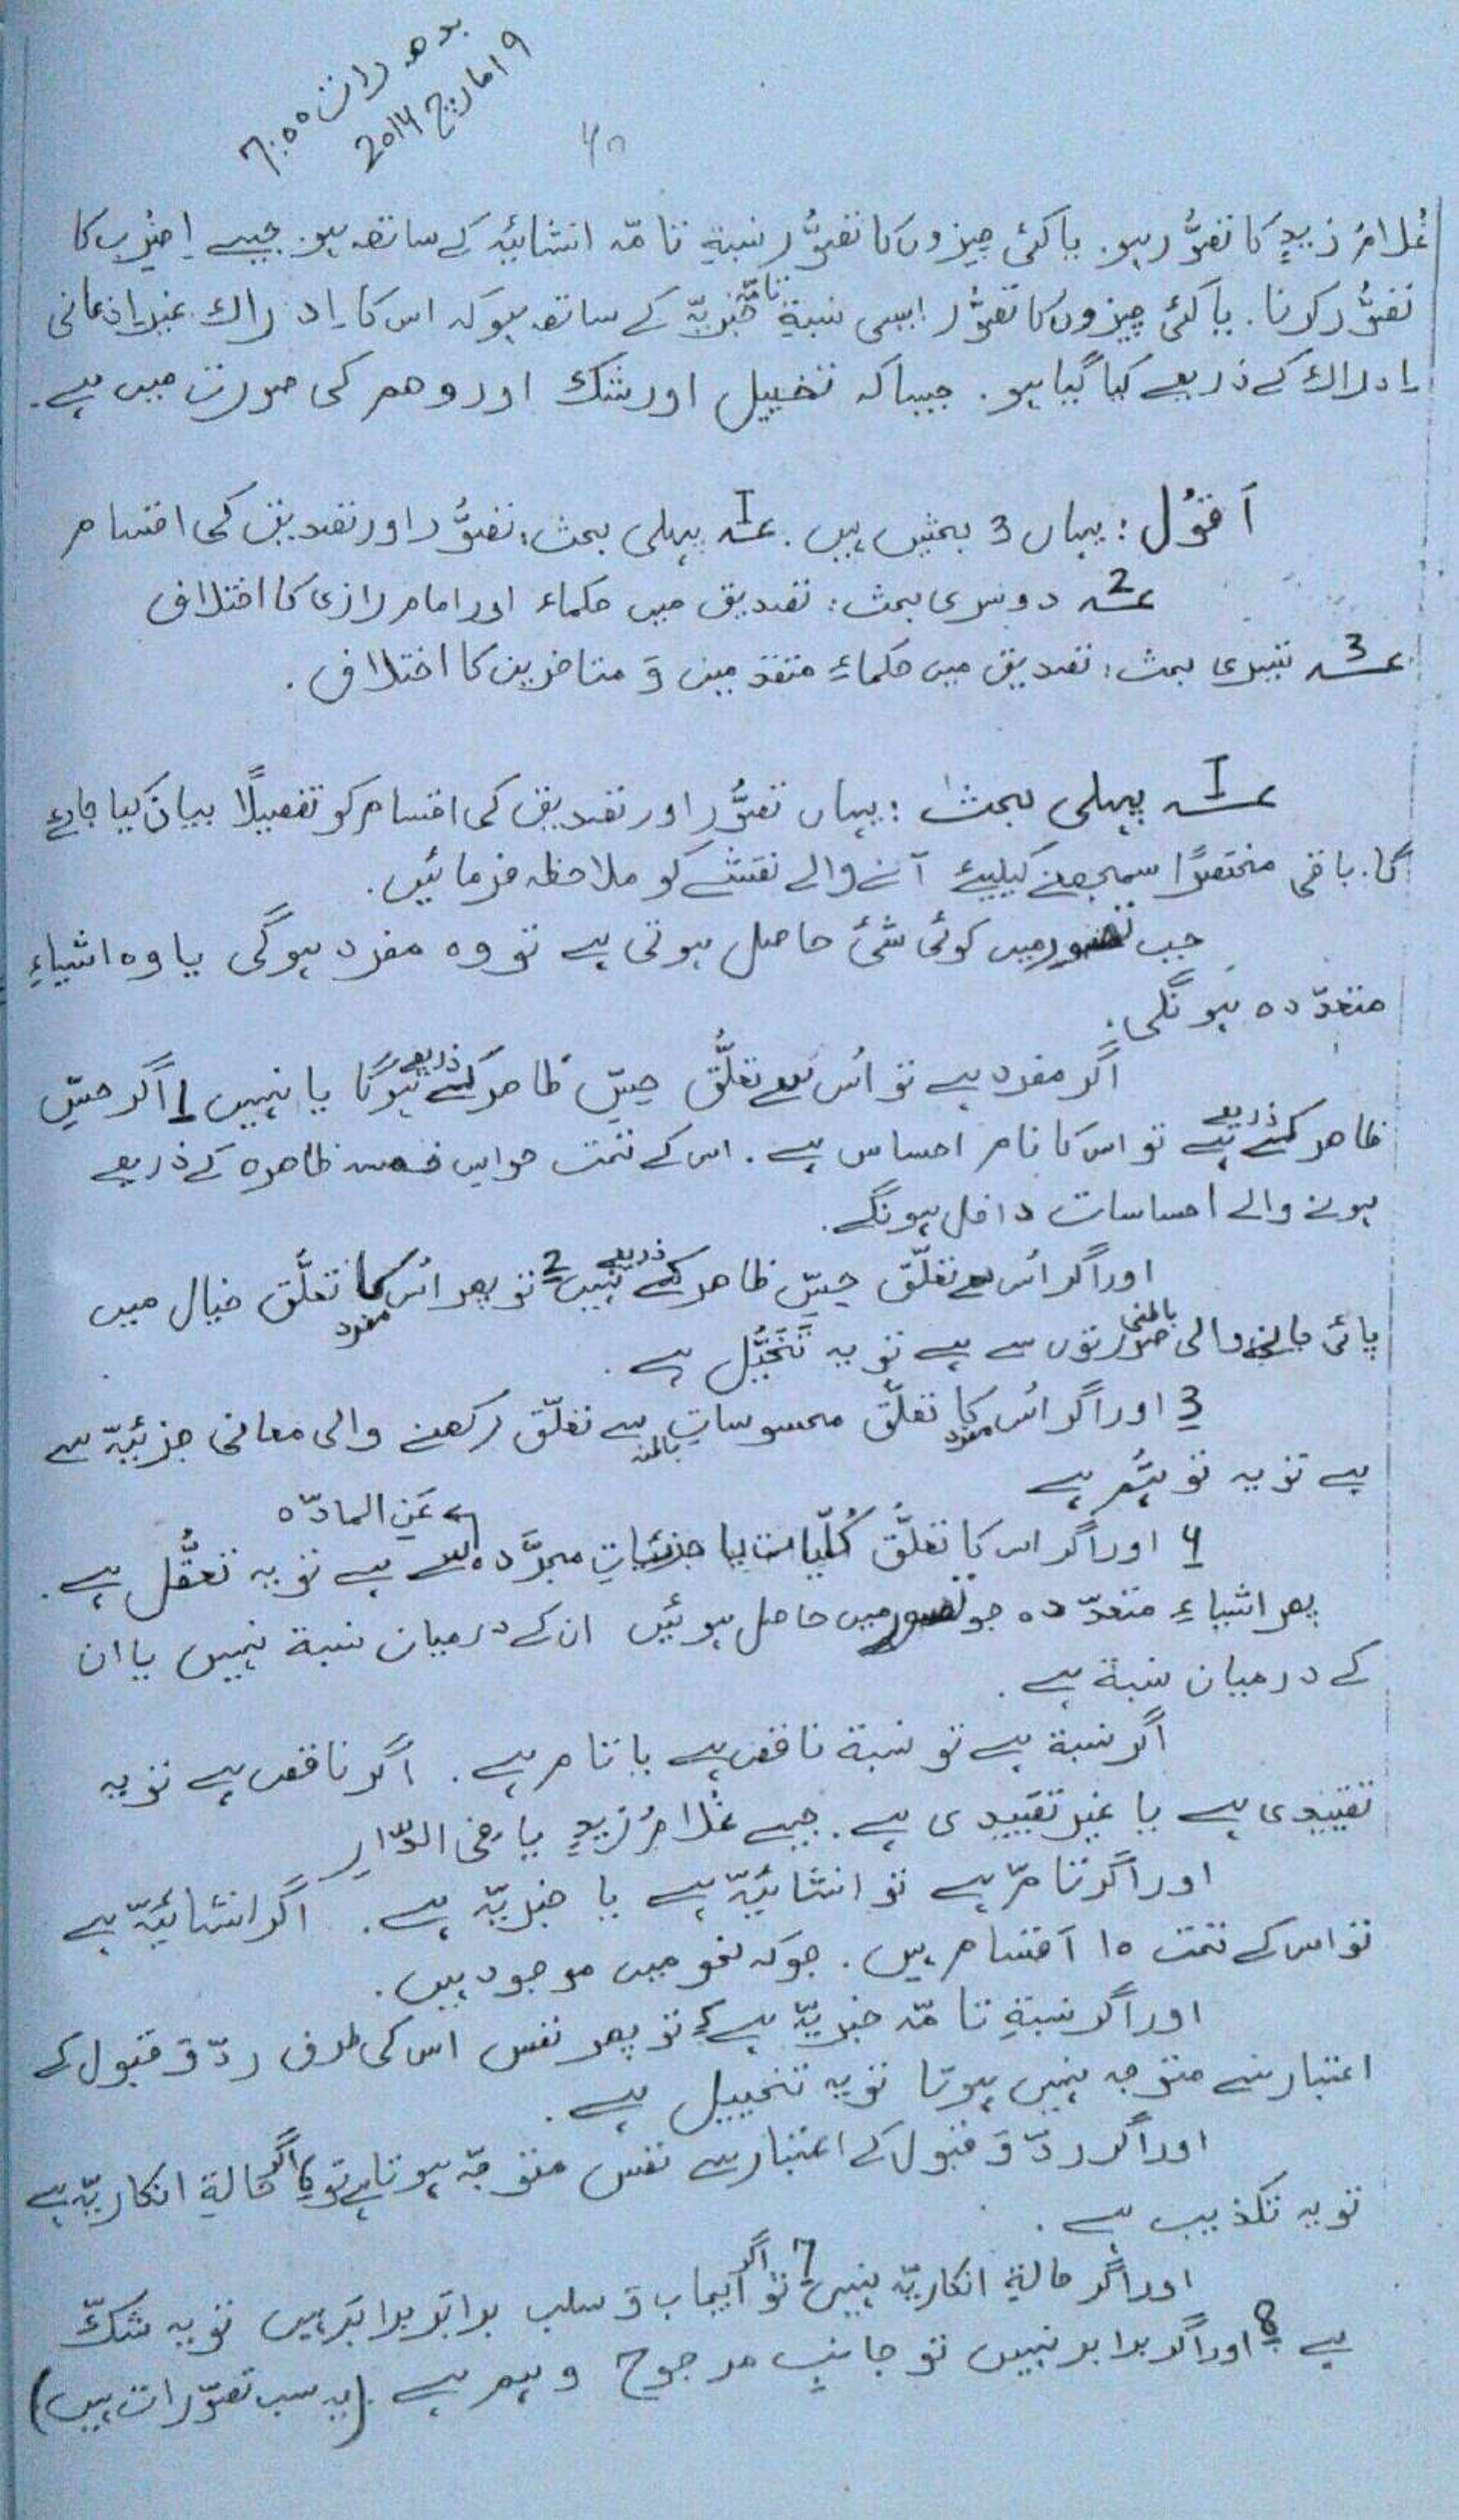 بدھ رات ۶:۰۰
۹ امارچ 2014
غُلامُ زیدٍ کا تصوُّر ہو. یا کئی چیزوں کا تصوُّر نسبةِ تامّہ انشائیّہ کے ساتھ ہو. جیسے اِضْرِب کا
تصوُّر کرنا. یا کئی چیزوں کا تصوُّر ایسی نسبةِ تامّہ خبریّہ کے ساتھ ہو کہ اس کا اِدراك غیرِ اِذعانی
اِدراك کے ذریعے کیا گیا ہو. جیسا کہ تخییل اور شك اور وھم کی صورت میں ہے.
اَقوْل : یہاں 3 بحثیں ہیں. I؎ پہلی بحث: تصوُّر اور تصدیق کی اقسام
2؎ دوسری بحث: تصدیق میں حکماء اور امام رازی کا اختلاف
3؎ تیسری بحث: تصدیق میں حکماءِ متقدمین وَ متاخرین کا اختلاف.
I؎ پہلی بحث : یہاں تصوُّر اور تصدیق کی اقسام کو تفصیلًا بیان کیا جائے
گا. باقی مختصرًا سمجھنے کیلیئے آنے والے نقشے کو ملاحظہ فرمائیں.
جب تصور میں کوئی شئ حاصل ہوتی ہے تو وہ مفرد ہوگی یا وہ اشیاءِ
متعدّدہ ہونگی.
اگر مفرد ہے تو اُس سے تعلُّق حِسِّ ظاھر کے ذریعے ہوگا یا نہیں 1 اگر حسِّ
ظاھر کے ذریعے ہے تو اس کا نام احساس ہے. اس کے تحت حواسِ خمسہ ظاھرہ کے ذریعے
ہونے والے احساسات داخل ہونگے.
اور اگر اُس سے تعلّق حِسِّ ظاھر کے ذریعے نہیں 2 تو پھر اُس مفرد کا تعلَّق خیال میں
پائی جانے والی باطنی صورتوں سے ہے تو یہ تَخَیُّل ہے.
3 اور اگر اُس مفرد کا تعلّق محسوساتِ باطنہ سے تعلّق رکھنے والی معانی جزئیّہ سے
ہے تو یہ توہُّم ہے
4 اور اگر اس کا تعلَّق کُلّیات یا جزئیاتِ مجرَّدہ عَنِ المادّہ سے ہے تو یہ تعقُّل ہے.
پھر اشیاءِ متعدّدہ جو تصور میں حاصل ہوئیں ان کے درمیان نسبة نہیں یا ان
کے درمیان نسبة ہے.
اگر نسبة ہے تو نسبة ناقص ہے یا تام ہے. اگر ناقص ہے تو یہ
تقییدی ہے یا غیر تقییدی ہے. جیسے غُلامُ زیدٍ یا فی الدّارِ
اور اگر تامّ ہے تو انشائیّہ ہے یا خبریّہ ہے. اگر انشائیّہ ہے
تو اس کے تحت ۱۰ اَقسام ہیں. جو کہ نحو میں موجود ہیں.
اور اگر نسبةِ تامّہ خبریّہ ہے تو پھر نفس اس کی طرف ردّ وَ قبول کے
اعتبار سے متوجہ نہیں ہوتا تو یہ تخییل ہے.
اور اگر ردّ وَ قبول کے اعتبار سے نفس متوجّہ ہوتا ہے تو اگر حالةِ انکاریّہ ہے
تو یہ تکذیب ہے.
اور اگر حالةِ انکاریّہ نہیں 7 تو اگر ایجاب وَ سلب برابر برابر ہیں تو یہ شكّ
ہے 8 اور اگر برابر نہیں تو جانبِ مرجوح وہم ہے. (یہ سب تصوّرات ہیں)